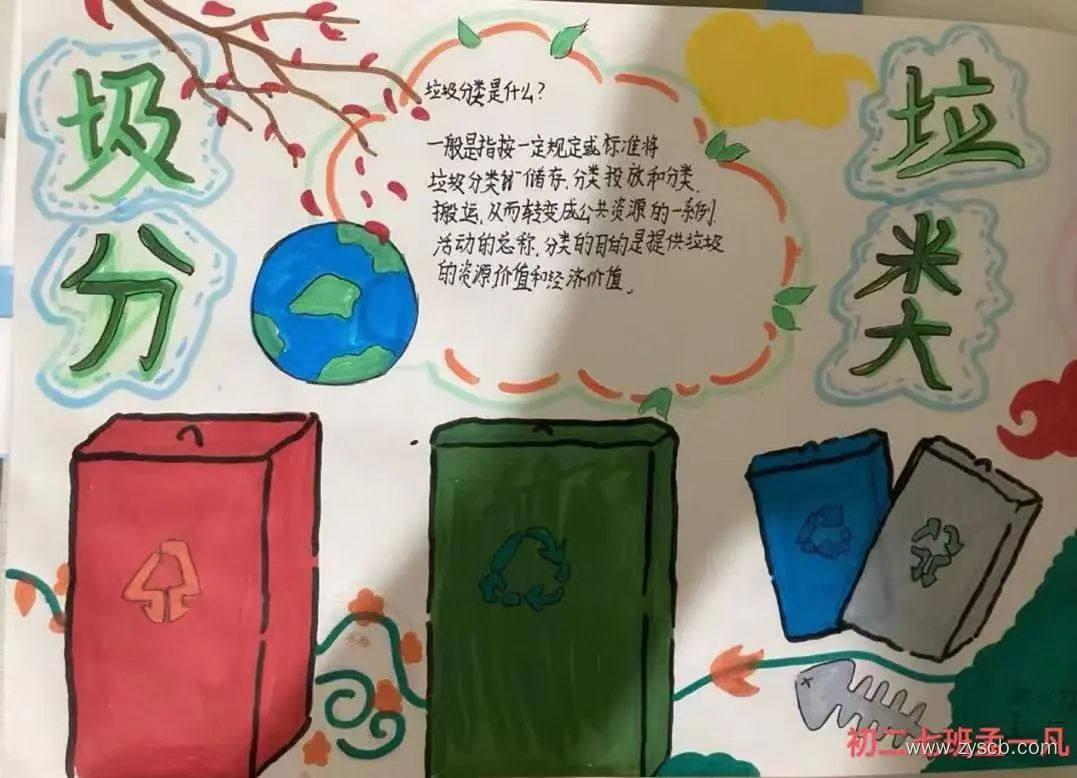 垃
圾
分
类
垃圾分类是什么？
一般是指按一定规定或标准将
垃圾分类储存、分类投放和分类
搬运，从而转变成公共资源的一系列
活动的总称。分类的目的是提供垃圾
的资源价值和经济价值。
初二七班孟一凡
www.zyscb.com